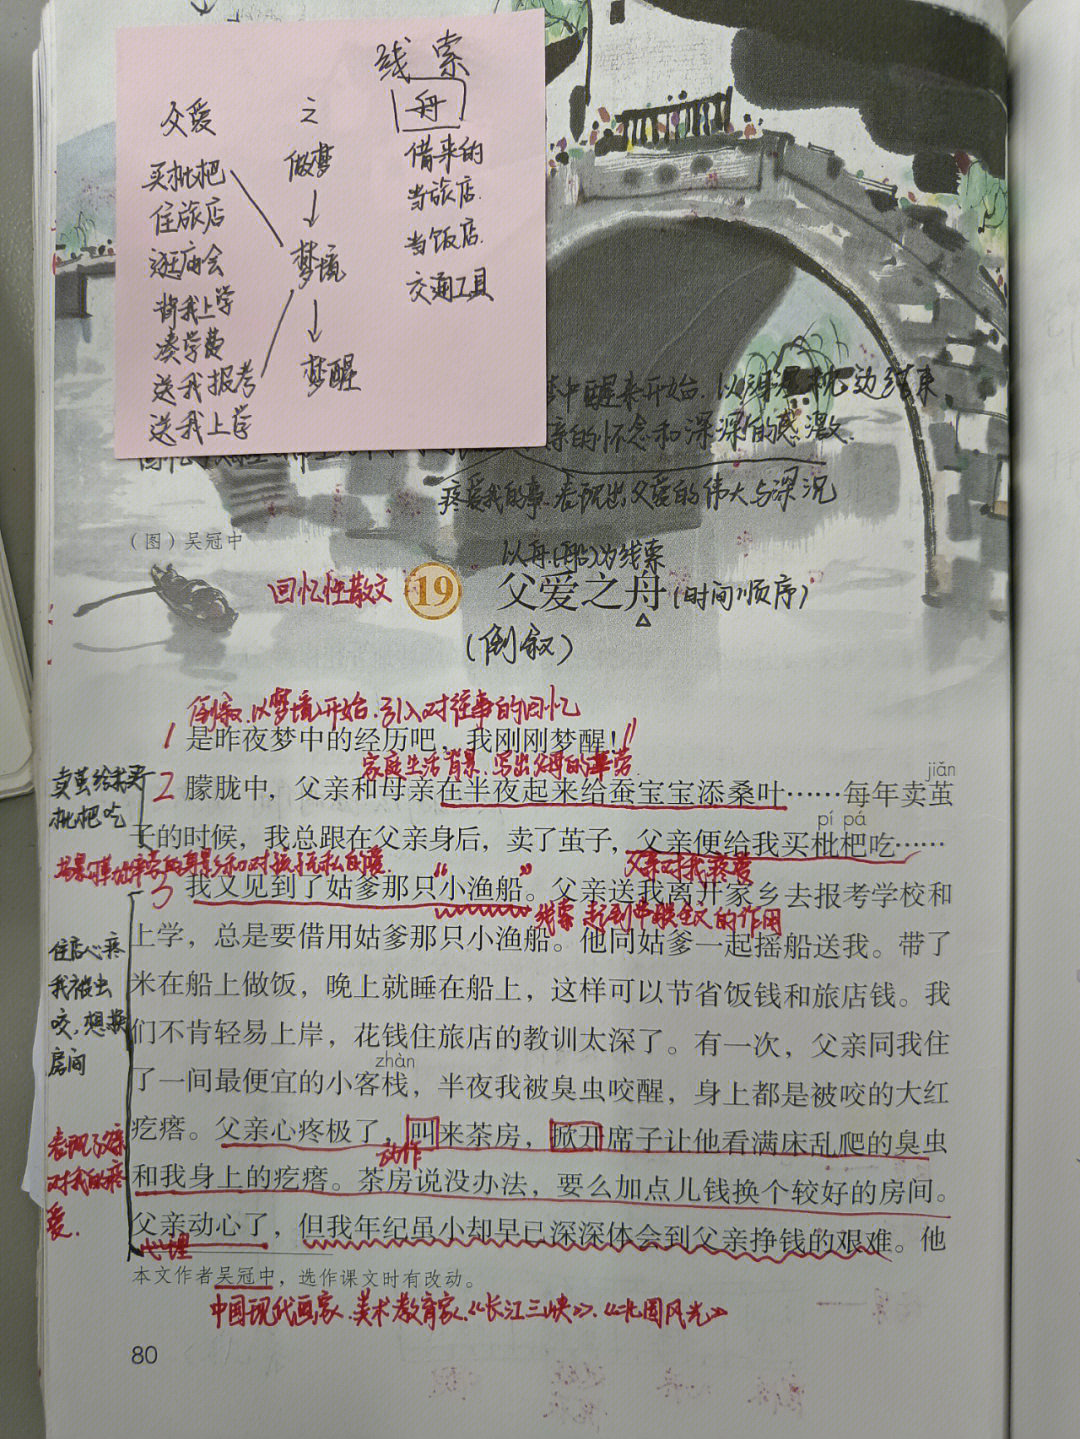 线索
父爱 之 舟
买枇杷 做梦 借来的
住旅店 当旅店
逛庙会 梦境 当饭店
背我上学 交通工具
凑学费
送我报考 梦醒
送我上学
梦中醒来开始.以泪湿枕边结束
亲的怀念和深深的感激.
疼爱我的事.表现出父爱的伟大与深沉
(图)吴冠中
以舟(船)为线索
回忆性散文 19 父爱之舟(时间顺序)
(倒叙)
倒叙.以梦境开始.引入对往事的回忆
1 是昨夜梦中的经历吧,我刚刚梦醒!
家庭生活背景.写出父母的辛劳
jiǎn
2 朦胧中,父亲和母亲在半夜起来给蚕宝宝添桑叶……每年卖茧
卖茧给我买
枇杷吃
pí pá
子的时候,我总跟在父亲身后,卖了茧子,父亲便给我买枇杷吃……
父亲对我疼爱
3 我又见到了姑爹那只“小渔船”。父亲送我离开家乡去报考学校和
线索 起到串联全文的作用
上学,总是要借用姑爹那只小渔船。他同姑爹一起摇船送我。带了
住店心疼
我被虫
咬,想换
房间
米在船上做饭,晚上就睡在船上,这样可以节省饭钱和旅店钱。我
们不肯轻易上岸,花钱住旅店的教训太深了。有一次,父亲同我住
zhàn
了一间最便宜的小客栈,半夜我被臭虫咬醒,身上都是被咬的大红
疙瘩。父亲心疼极了,叫来茶房,掀开席子让他看满床乱爬的臭虫
动作
表现了父亲
对我的疼
爱.
和我身上的疙瘩。茶房说没办法,要么加点儿钱换个较好的房间。
父亲动心了,但我年纪虽小却早已深深体会到父亲挣钱的艰难。他
心理
本文作者吴冠中,选作课文时有改动。
中国现代画家.美术教育家.《长江三峡》.《北国风光》
80